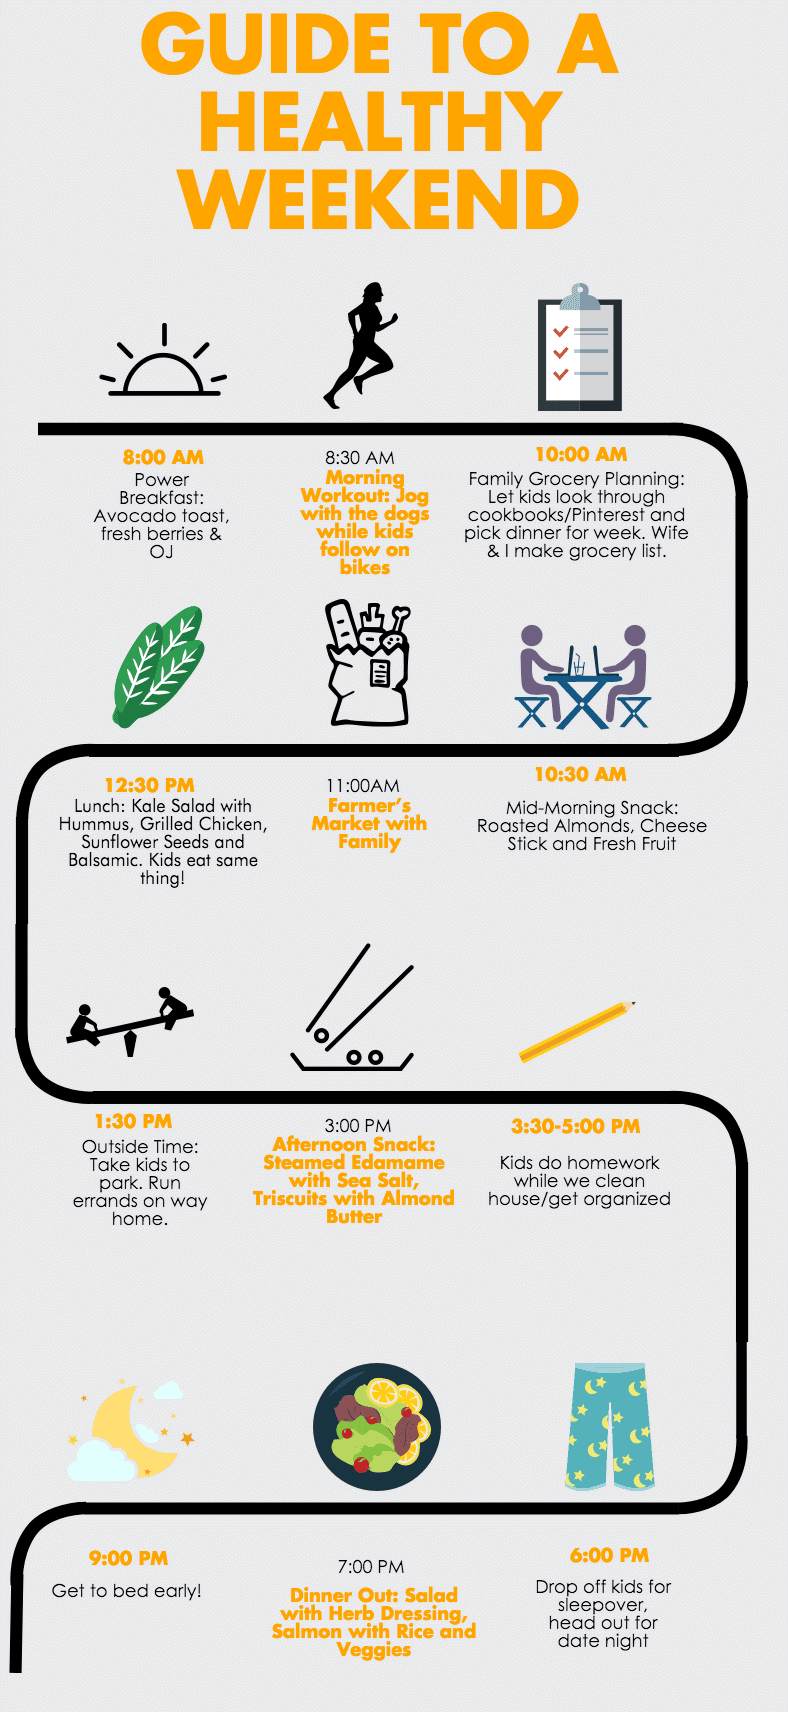 GUIDE TO A
HEALTHY
WEEKEND
8:00 AM
Power
Breakfast:
Avocado toast,
fresh berries &
OJ
8:30 AM
Morning
Workout: Jog
with the dogs
while kids
follow on
bikes
10:00 AM
Family Grocery Planning:
Let kids look through
cookbooks/Pinterest and
pick dinner for week. Wife
& I make grocery list.
10:30 AM
Mid-Morning Snack:
Roasted Almonds, Cheese
Stick and Fresh Fruit
11:00AM
Farmer's
Market with
Family
12:30 PM
Lunch: Kale Salad with
Hummus, Grilled Chicken,
Sunflower Seeds and
Balsamic. Kids eat same
thing!
1:30 PM
Outside Time:
Take kids to
park. Run
errands on way
home.
3:00 PM
Afternoon Snack:
Steamed Edamame
with Sea Salt,
Triscuits with Almond
Butter
3:30-5:00 PM
Kids do homework
while we clean
house/get organized
6:00 PM
Drop off kids for
sleepover,
head out for
date night
7:00 PM
Dinner Out: Salad
with Herb Dressing,
Salmon with Rice and
Veggies
9:00 PM
Get to bed early!